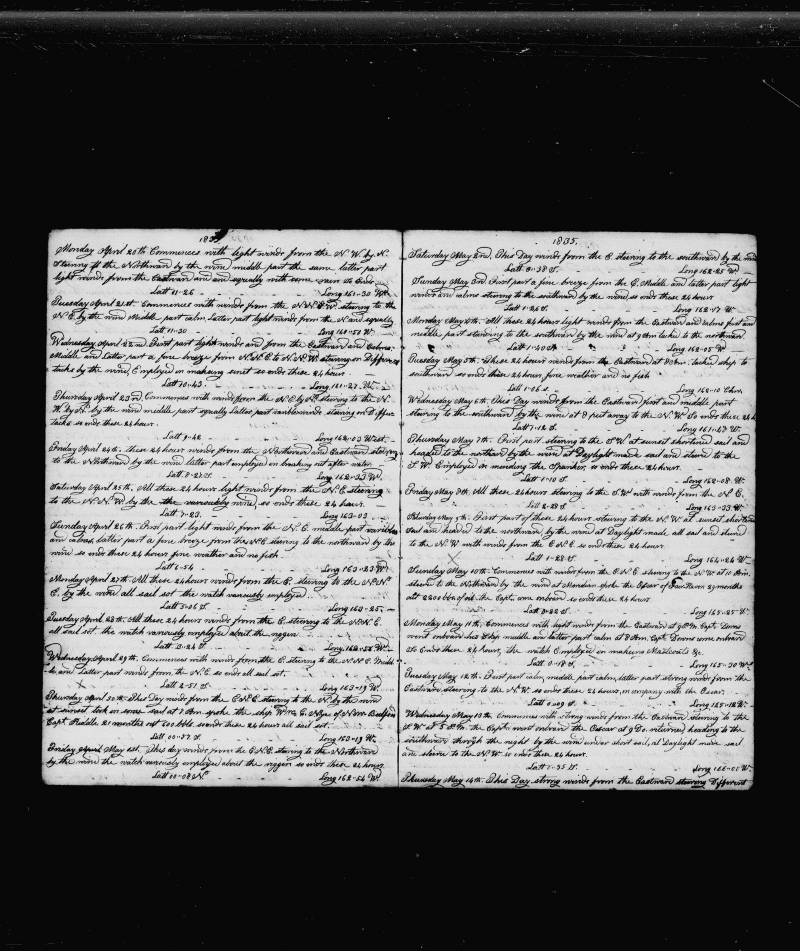 1835
Monday April 20th Commences with light winds from the N. W. by N.
Steering to the Northward by the wind middle part the same latter part
light winds from the Eastward and squally with some rain So Ends
Latt 11-26 Long 161-30 W
Tuesday April 21st Commences with winds from the N.N.W. steering to the
N E by the wind Middle part calm Latter part light winds from the N and squally
Latt 11-30 Long 160-57 W
Wednesday April 22nd First part light winds and from the Eastward and Calms
Middle and Latter part a fine breeze from N.N.E to N.N.W. steering on Different
tacks by the wind, Employed in making sinet so ends these 24 hours
Latt 10-43 Long 161-27 W
Thursday April 23rd Commences with winds from the N. E by N. steering to the N.
W. by N. by the wind middle part squally Latter part winds steering on Differ
tacks so ends these 24 hours.
Latt 9-42 Long 162-03 West
Friday April 24th these 24 hours winds from the Northward and Eastward steering
to the Northward by the wind latter part employed in breaking out after water
Latt 8-27 S. Long 162-33 W
Saturday April 25th All these 24 hours light winds from the N. E. steering
to the N. N. W. by the wind, so ends these 24 hours.
Latt 7-23 Long 163-03
Sunday April 26th First part light winds from the N. E. middle part
and calms, latter part a fine breeze from the N.E. steering to the northward by the
wind so ends these 24 hours fine weather and no fish
Latt 6-54 Long 163-23 W
Monday April 27th All these 24 hours winds from the E. steering to the N.N.
E. by the wind all sail set the watch variously employed
Latt 5-06 S. Long 163-25
Tuesday April 28th All these 24 hours winds from the E. steering to the N.N.E.
all sail set. the watch variously employed about the riggen
Latt 3-24 S Long 162-56 W
Wednesday April 29th Commences with winds from the E. steering to the N.N.E Middle
and Latter part winds from the N.E. so ends all sail set.
Latt 2-51 S Long 163-19 W
Thursday April 30th This Day winds from the E.N.E. steering to the N. by the wind
at sunset took in some sail at 7 Am spoke the ship Wm C. Nye of New Bedford
Capt. Riddle 21 months out 600 bbls. so ends these 24 hours all sail set.
Latt 00-57 S Long 163-19 W
Friday May 1st This day winds from the E.N.E. steering to the Northward
by the wind the watch variously employed about the riggen so ends these 24 hours
Latt 00-08 N Long 162-54 W
1835.
Saturday May 2nd This Day winds from the E. steering to the southward by the wind
Latt 0-38 S. Long 162-25 W
Sunday May 3rd First part a fine breeze from the E. Middle and latter part light
winds and calms steering to the southward by the wind so ends these 24 hours
Latt 1-24 S Long 162-17 W
Monday May 4th. All these 24 hours light winds from the Eastward and calms first and
middle part standing to the southward by the wind at 9 Am tacked to the northward
Latt 1-40 S Long 162-05 W
Tuesday May 5th. These 24 hours winds from the Eastward at 8 Am. tacked ship to
southward so ends these 24 hours, fine weather and no fish
Latt 1-06 S Long 162-10 Chro.
Wednesday May 6th. This Day winds from the Eastward first and middle part
steering to the southward by the wind at 8 put away to the N. W. So ends these 24 h
Latt 1-12 S. Long 161-47 W
Thursday May 7th. First part steering to the S.W. at sunset shortened sail and
headed to the northward by the wind at Daylight made sail and steered to the
S.W. Employed in mending the Spanker, so ends these 24 hours.
Latt 1-10 S Long 162-08 W.
Friday May 8th. All these 24 hours steering to the S.W. with winds from the N. E.
Latt 2-28 S. Long 163-33 W
Saturday May 9th. First part of these 24 hours steering to the N. W. at sunset shortened
sail and headed to the northward, by the wind at Daylight made all sail and steered
to the N. W with winds from the E N E so ends these 24 hours.
Latt 1-28 S. Long 164-24 W
Sunday May 10th. Commences with winds from the E. N. E. steering to the N. W. at 10 Am.
steered to the Northward by the wind at Meridian spoke the Oscar of Fair Haven 29 months
out 2200 bbls of oil, the Capt. came onboard so ends these 24 hours.
Latt 0-22 S. Long 165-25 W
Monday May 11th, Commences with light winds from the Eastward at Pm. Capt. Downs
went onboard his Ship middle and latter part calm at 8 Am. Capt. Downs came onboard
So Ends these 24 hours, the watch Employed in making &c.
Latt 0-19 S. Long 165-30 W
Tuesday May 12th. First part calm, middle part calm, latter part strong winds from the
Eastward steering to the N. W. so ends these 24 hours, in company with the Oscar.
Latt 0-09 S. Long 165-18 W
Wednesday May 13th, Commences with strong winds from the Eastward steering to the
W at 5 Pm. the Capt. went onboard the Oscar at 9 Do. returned heading to the
southward through the night by the wind under short sail, at Daylight made sail
and steered to the S.W. so ends these 24 hours.
Latt 0-35 S Long 166-00 W
Thursday May 14th. This Day strong winds from the Eastward steering Different